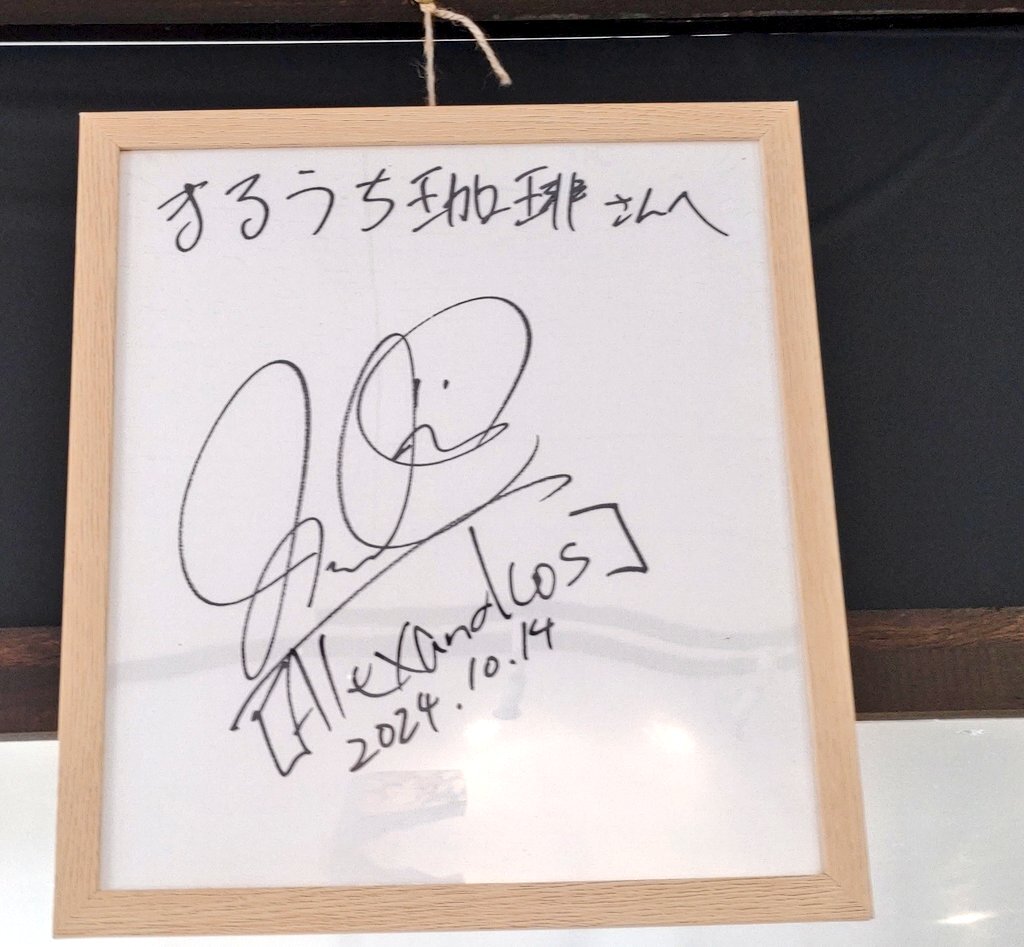 まるうち珈琲さんへ
[Alexandros]
2024.10.14